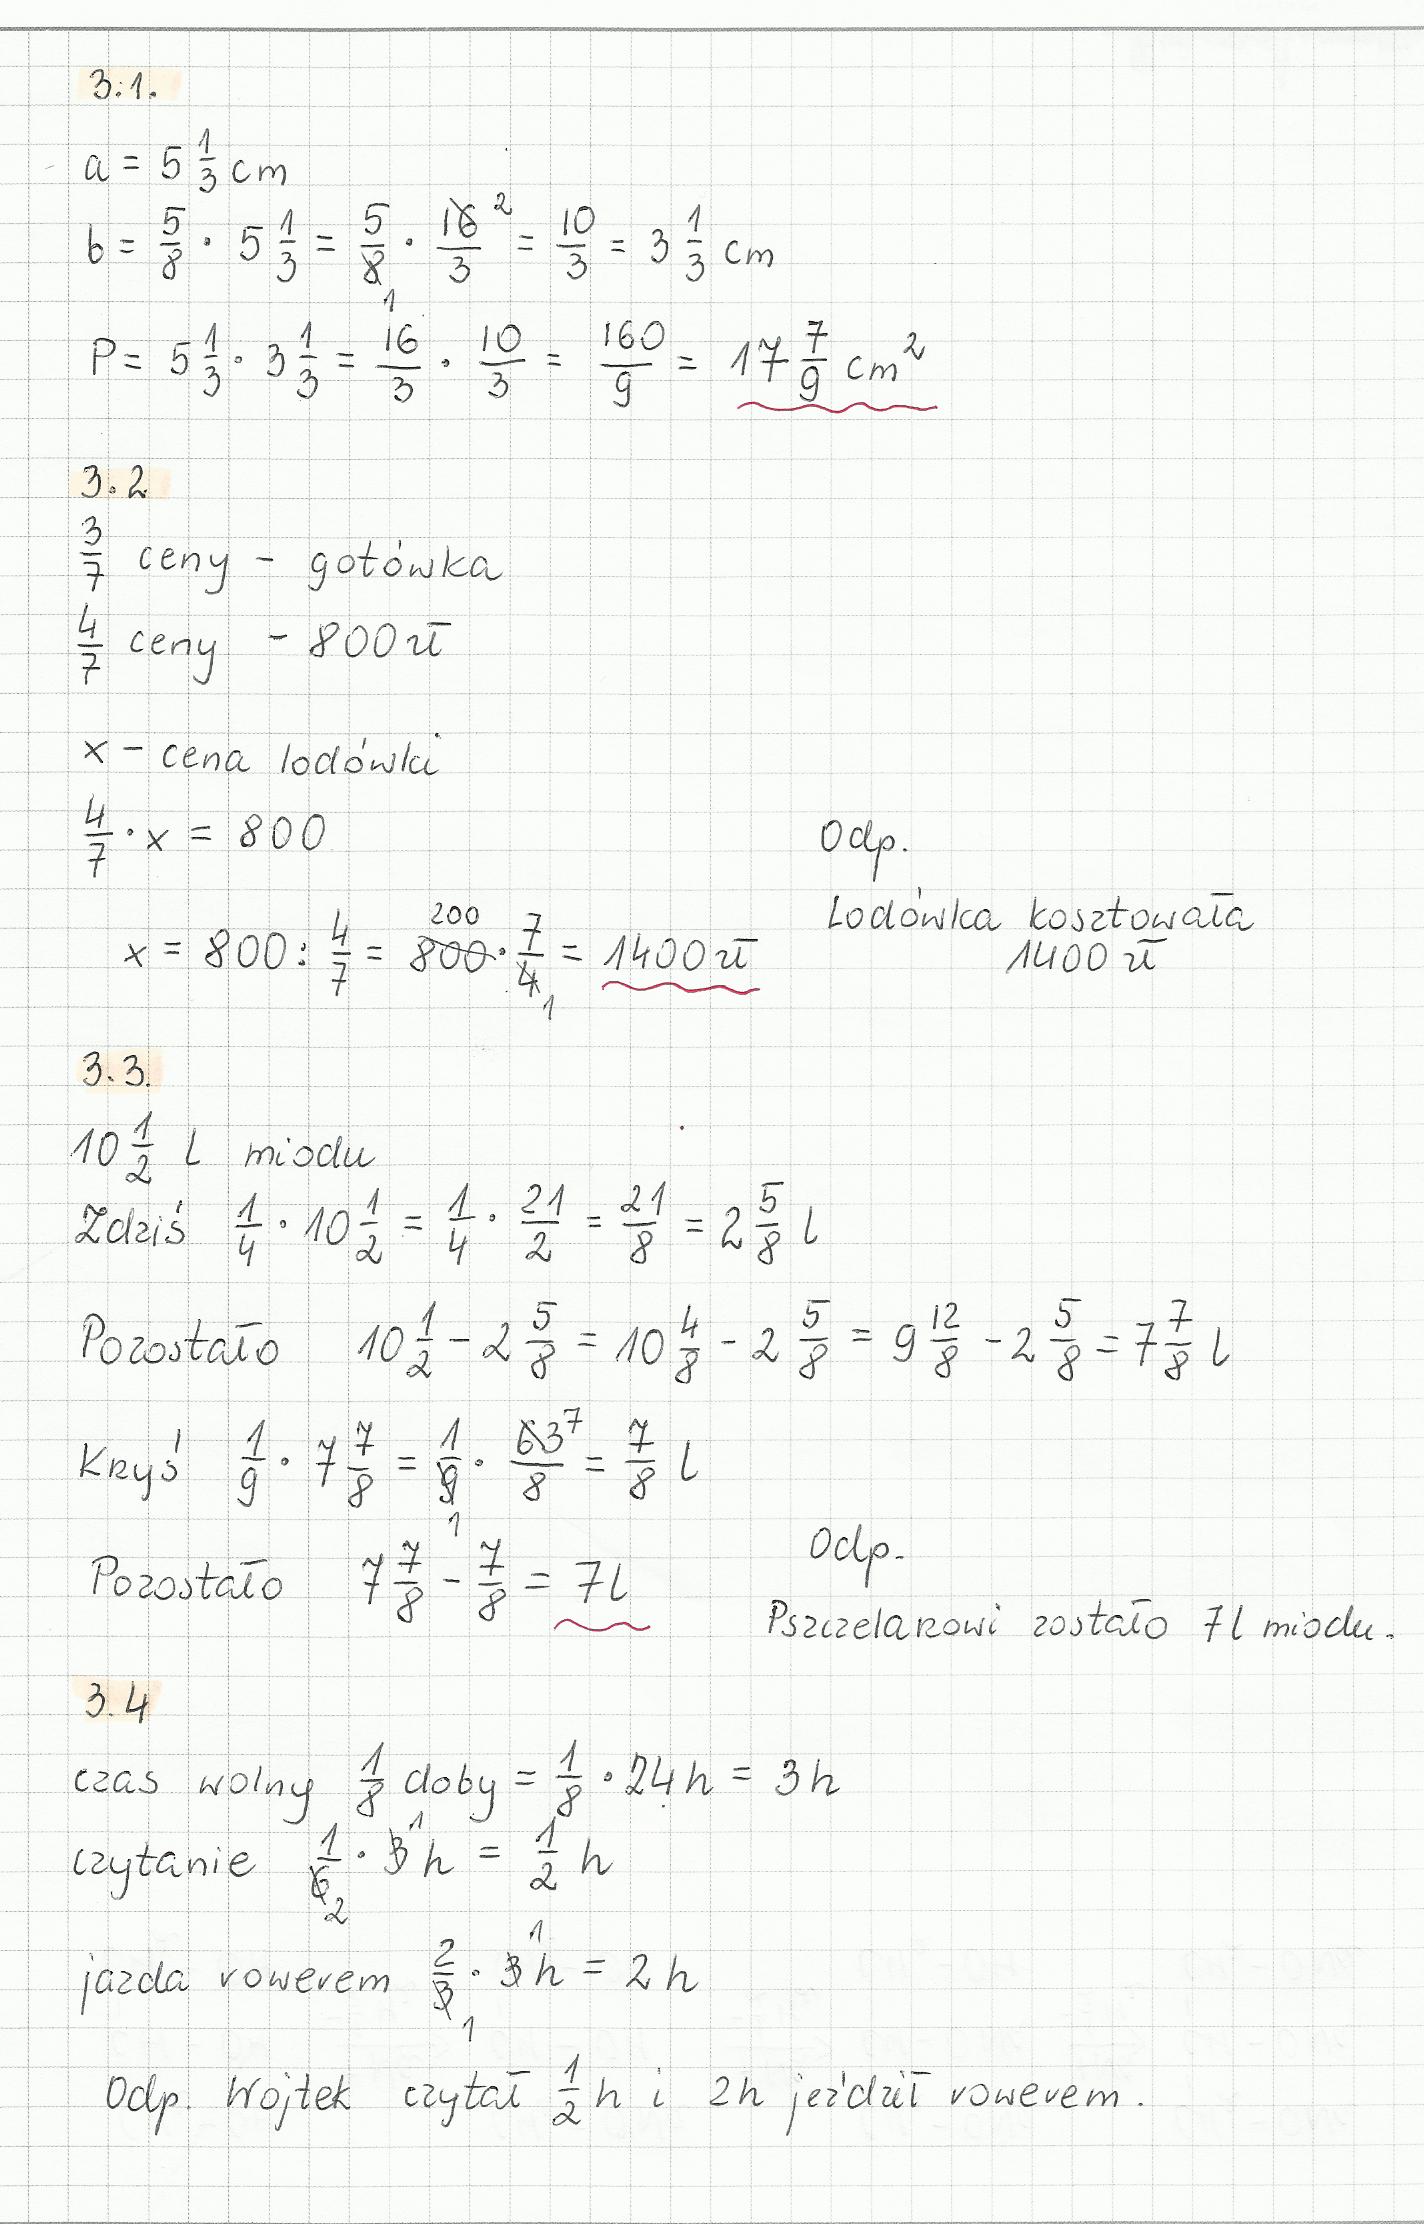 3.1.
a = 5 1/3 cm
b = 5/8 · 5 1/3 = 5/8 1 · 16/3 2 = 10/3 = 3 1/3 cm
P = 5 1/3 · 3 1/3 = 16/3 · 10/3 = 160/9 = 17 7/9 cm²
3.2
3/7 ceny - gotówka
4/7 ceny - 800 zł
x - cena lodówki
4/7 · x = 800
x = 800 : 4/7 = 800 200 · 7/4 1 = 1400 zł
Odp.
Lodówka kosztowała
1400 zł
3.3.
10 1/2 l miodu
Zdziś 1/4 · 10 1/2 = 1/4 · 21/2 = 21/8 = 2 5/8 l
Pozostało 10 1/2 - 2 5/8 = 10 4/8 - 2 5/8 = 9 12/8 - 2 5/8 = 7 7/8 l
Kryś 1/9 · 7 7/8 = 1/9 1 · 63/8 7 = 7/8 l
Pozostało 7 7/8 - 7/8 = 7 l
Odp.
Pszczelarowi zostało 7 l miodu.
3.4
czas wolny 1/8 doby = 1/8 · 24 h = 3 h
czytanie 1/6 2 · 3 1 h = 1/2 h
jazda rowerem 2/3 1 · 3 1 h = 2 h
Odp. Wojtek czytał 1/2 h i 2h jeździł rowerem.